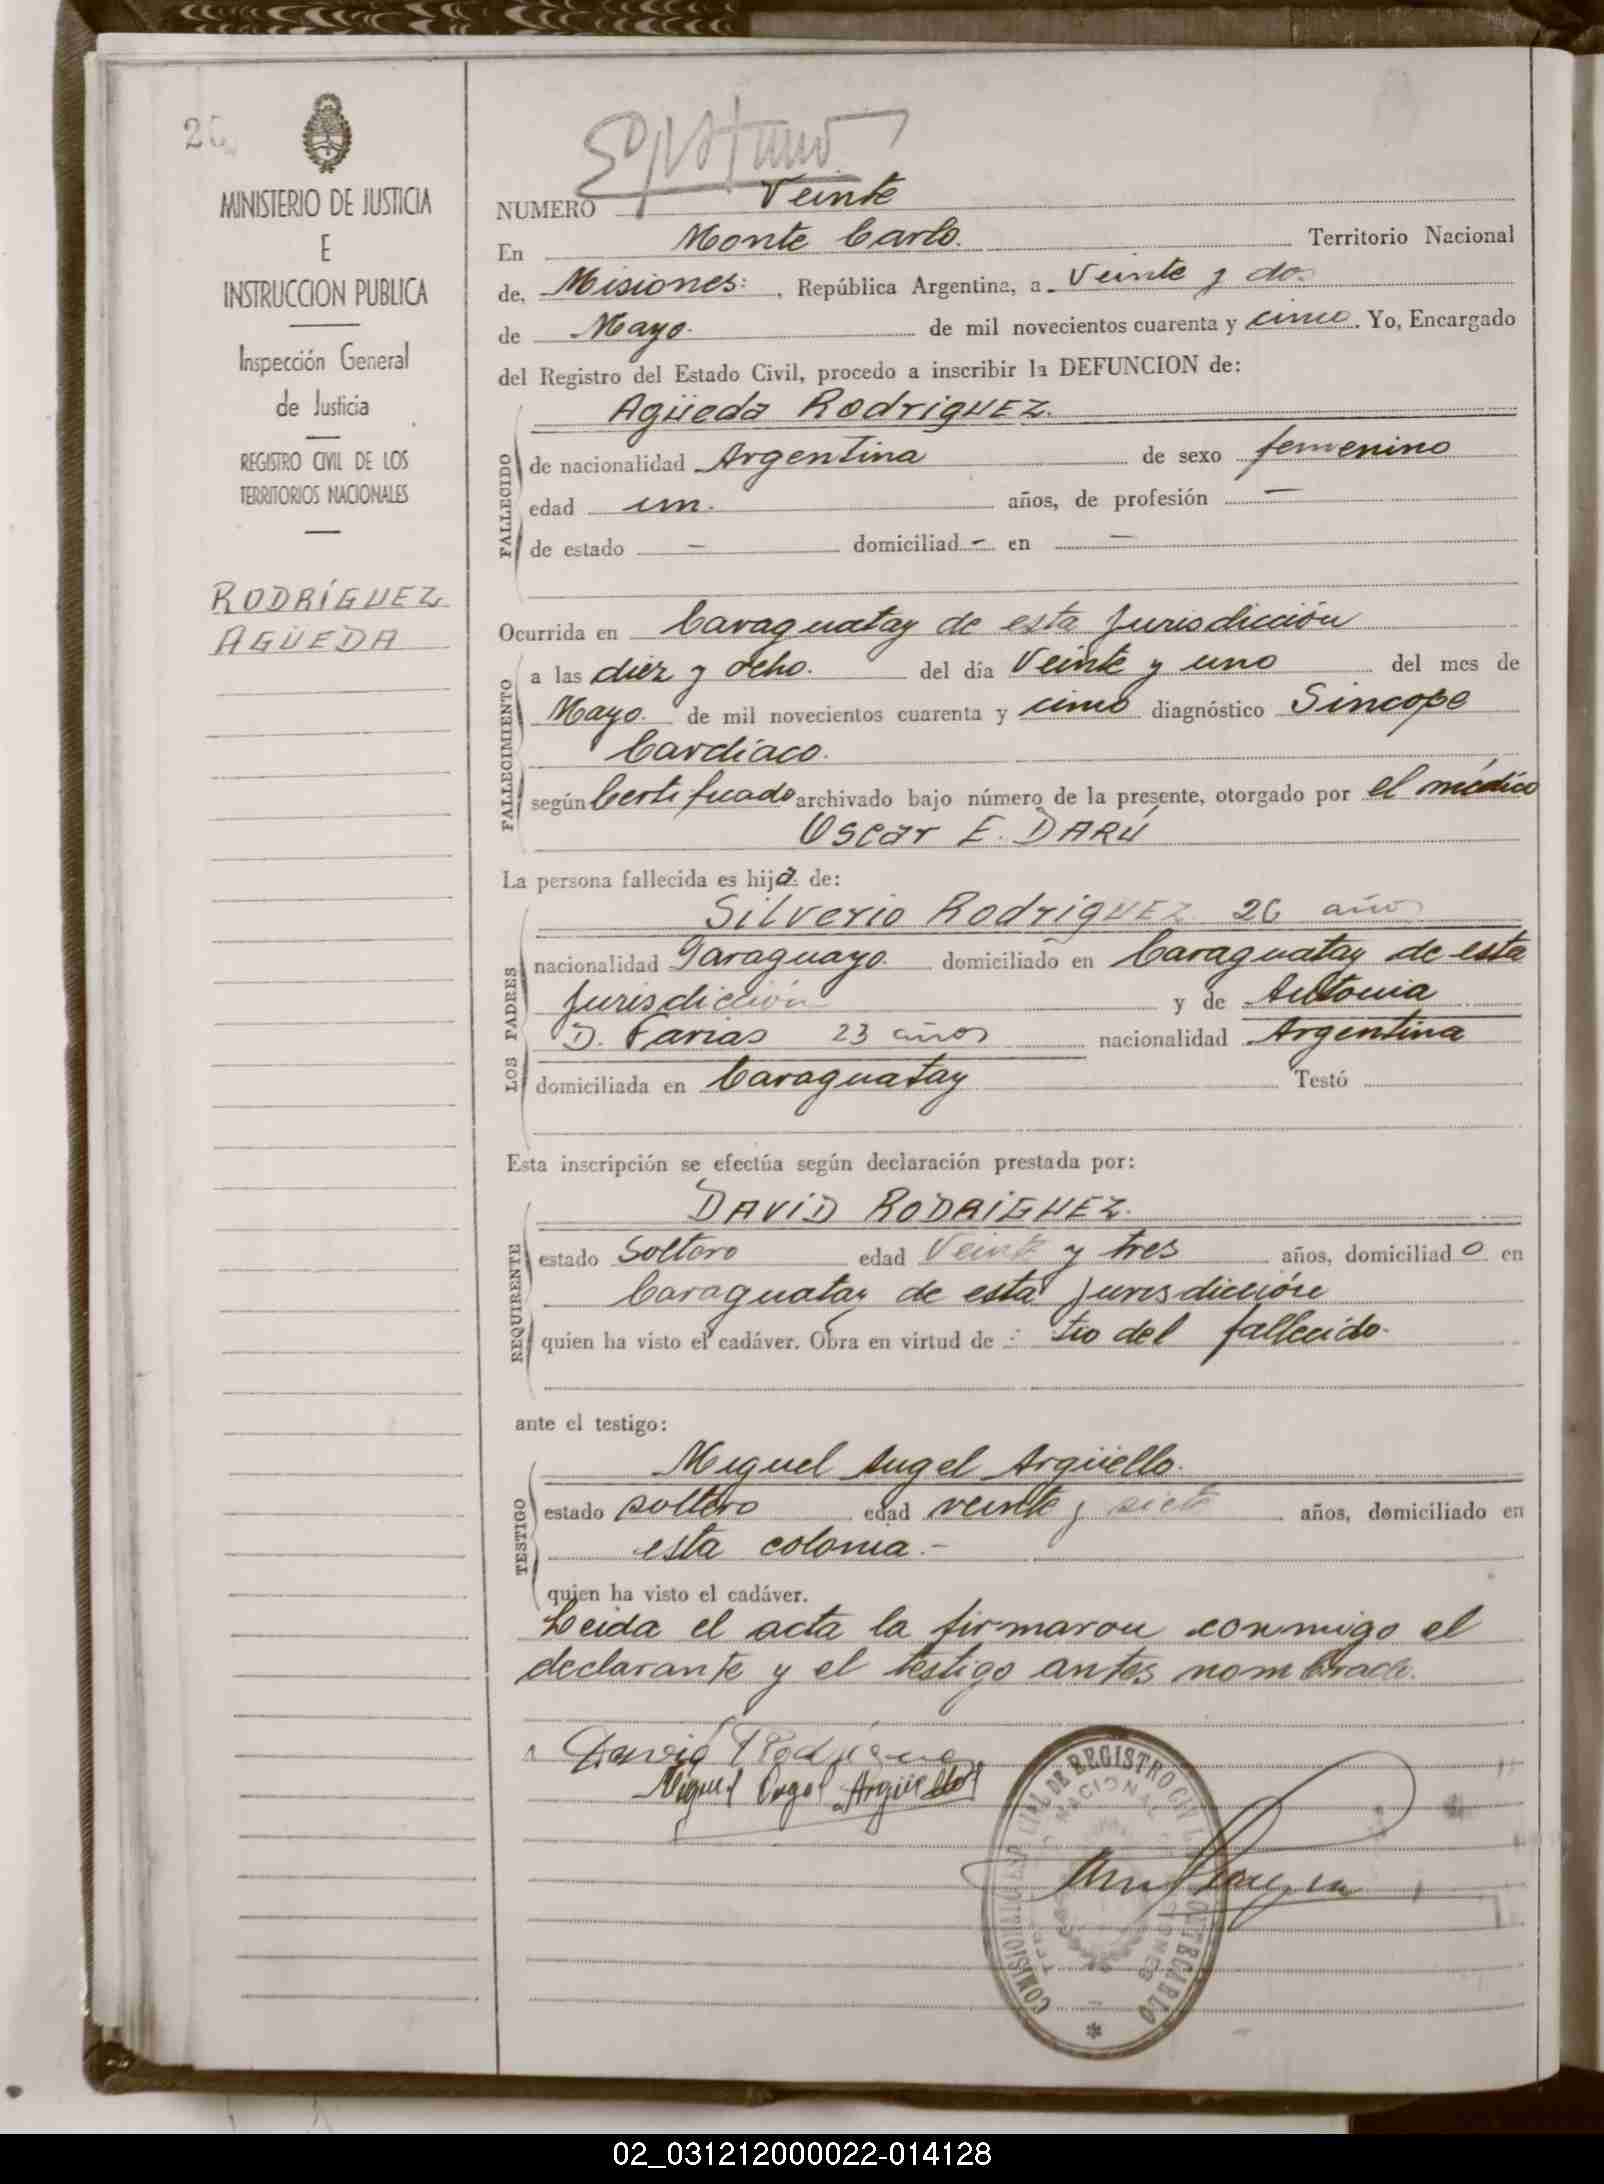 MINISTERIO DE JUSTICIA
E
INSTRUCCION PUBLICA
Inspección General
de Justicia
REGISTRO CIVIL DE LOS
TERRITORIOS NACIONALES
RODRÍGUEZ
AGÜEDA
NUMERO Veinte
En Monte Carlo. Territorio Nacional
de, Misiones: , República Argentina, a Veinte y dos
de Mayo. de mil novecientos cuarenta y cinco. Yo, Encargado
del Registro del Estado Civil, procedo a inscribir la DEFUNCION de:
Agüeda RodrigUEZ.
FALLECIDO
de nacionalidad Argentina de sexo femenino
edad un. años, de profesión —
de estado — domiciliad - en —
Ocurrida en Caraguatay de esta Jurisdicción
FALLECIMIENTO
a las diez y ocho. del día Veinte y uno del mes de
Mayo. de mil novecientos cuarenta y cinco diagnóstico Sincope
Cardíaco.
según Certificado archivado bajo número de la presente, otorgado por el médico
Oscar E. DARÚ
La persona fallecida es hija de:
LOS PADRES
Silverio RodrigUEZ 26 años
nacionalidad Paraguayo. domiciliado en Caraguatay de esta
Jurisdicción y de Antonia
D. Farias 23 años nacionalidad Argentina
domiciliada en Caraguatay Testó
Esta inscripción se efectúa según declaración prestada por:
REQUIRENTE
DAVID RODRIGUEZ.
estado Soltero edad Veinte y tres años, domiciliado en
Caraguatay de esta Jurisdicción
quien ha visto el cadáver. Obra en virtud de : tio del fallecido.
ante el testigo:
TESTIGO
Miguel Angel Argüello.
estado soltero edad veinte y siete años, domiciliado en
esta colonia.-
quien ha visto el cadáver.
Leida el acta la firmaron conmigo el
declarante y el testigo antes nombrado.
David Rodrigue
Miguel Angel Argüello
02_031212000022-014128